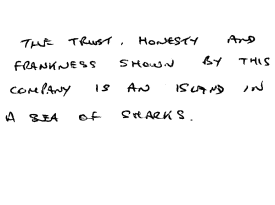 THE TRUST, HONESTY AND
FRANKNESS SHOWN BY THIS
COMPANY IS AN ISLAND IN
A SEA OF SHARKS.